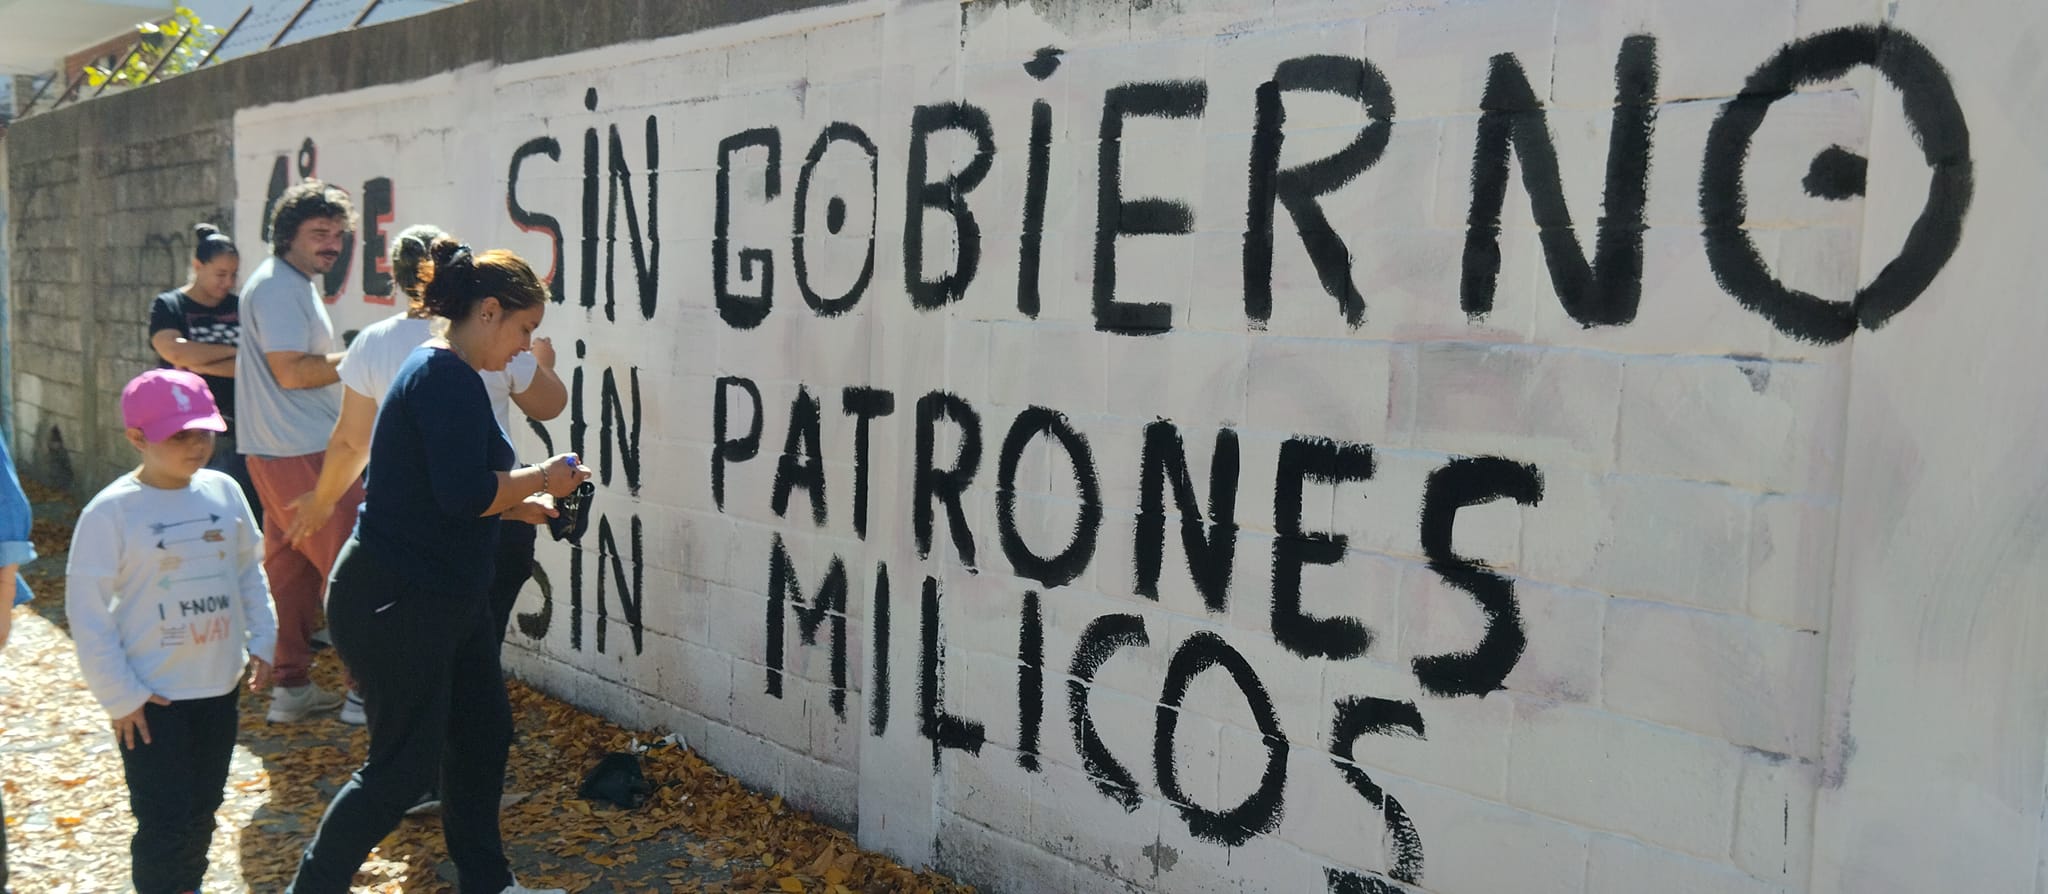 1° DE
SiN GOBiERNO
SiN PATRONES
SIN MILICOS
I KNOW
THE WAY